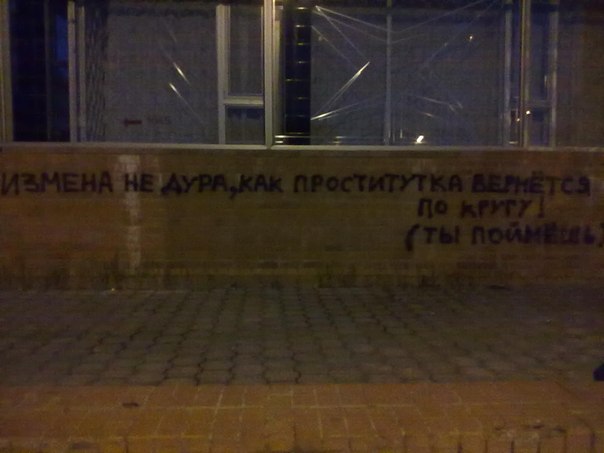 ИЗМЕНА НЕ ДУРА, КАК ПРОСТИТУТКА ВЕРНЁТСЯ
ПО КРУГУ!
(ТЫ ПОЙМЁШЬ)